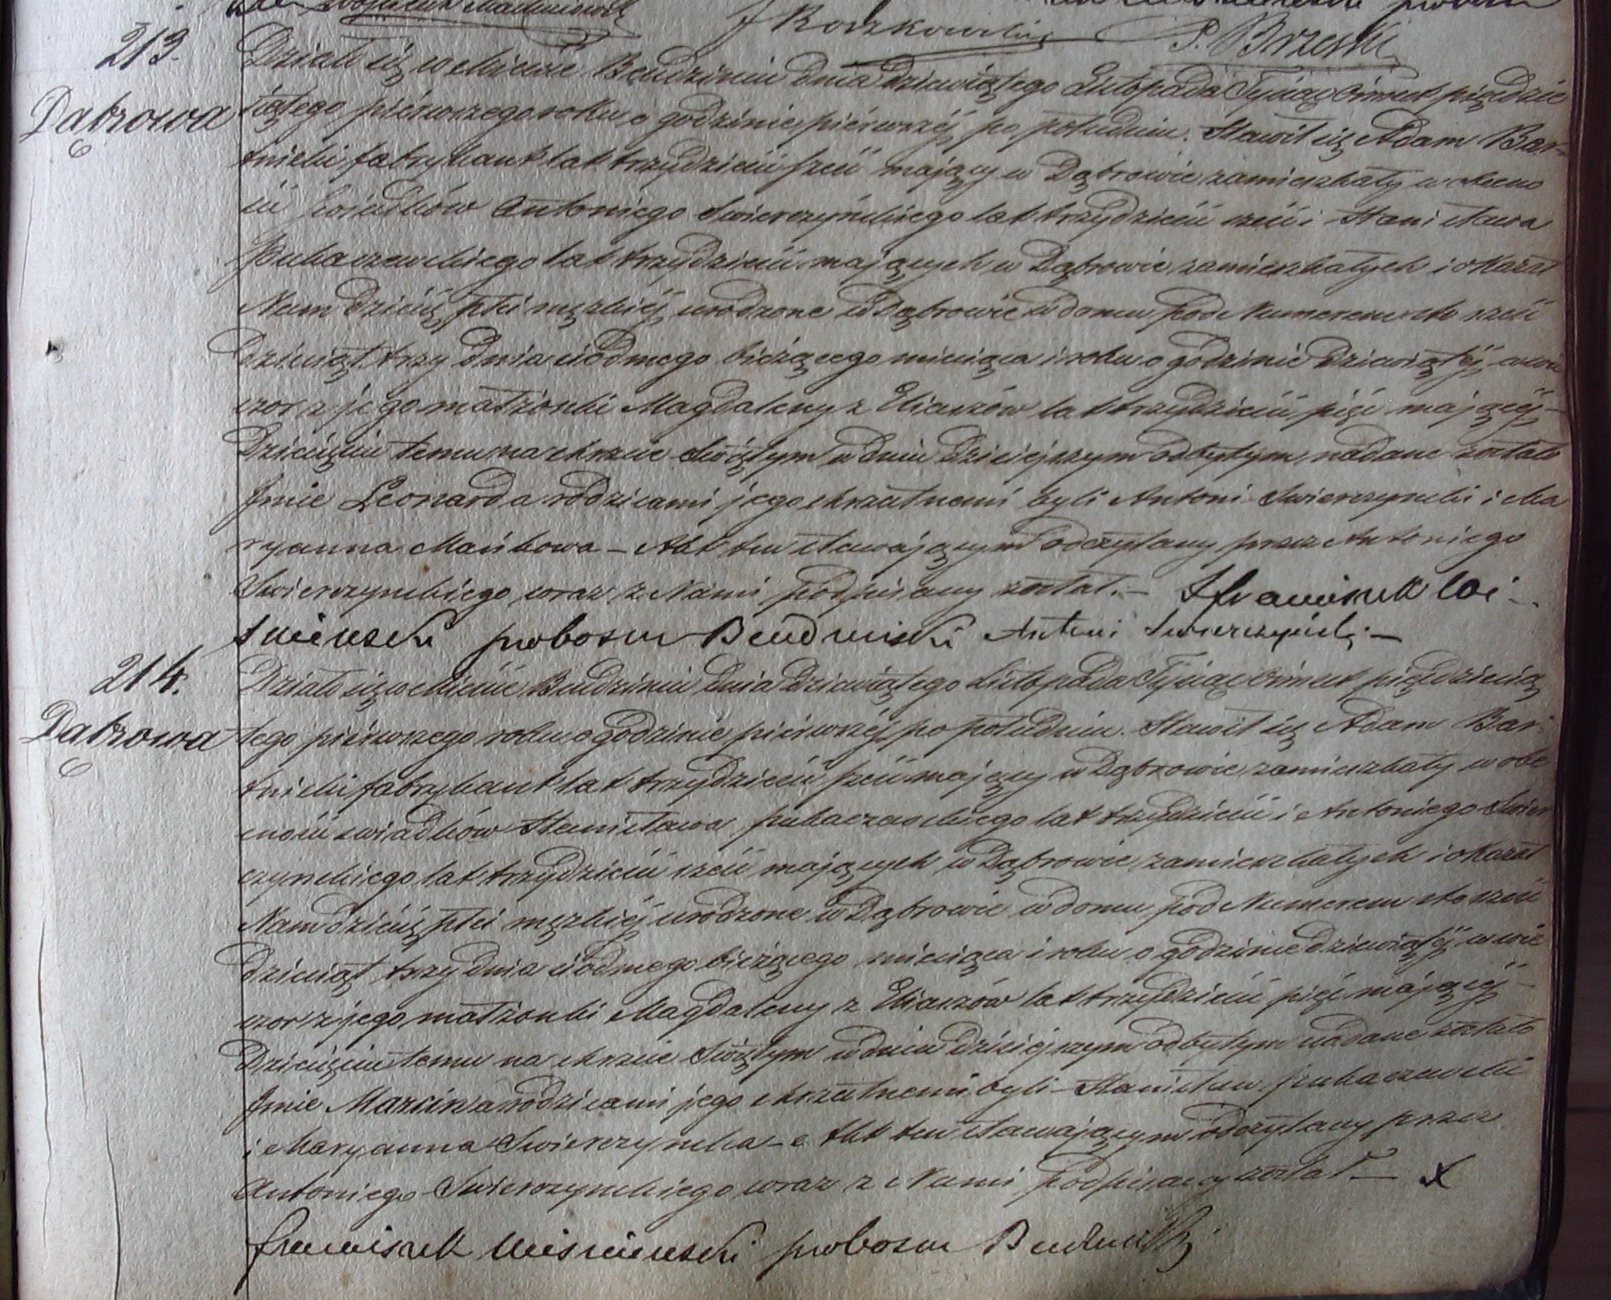 Wojciech Maciniewicz
J Roszkowski P. Brzeski
213.
Dąbrowa
Działo się w Mieście Bendzinie dnia dziewiątego Listopada Tysiąc Ośmset pięćdzie
siątego pierwszego roku o godzinie pierwszéj po południu. Stawił się Adam Bar-
tnicki fabrykant lat trzydzieści sześć mający w Dąbrowie zamieszkały w obecno
ści świadków Antoniego Swierczyńskiego lat trzydzieści sześć i Stanisława
lat trzydzieści mających w Dąbrowie zamieszkałych i okazał
Nam dziécię płci męzkiéj urodzone w Dąbrowie w domu pod Numerem sto sześć
dziesiąt trzy dnia siódmego bieżącego miesiąca i roku o godzinie dziewiątéj w wie
czor z jego małżonki Magdaleny z Eliaszów lat trzydzieści pięć mającéj –
Dziecięciu temu na chrzcie Świętym w dniu dzisiejszym odbytym, nadane zostało
Jmie Leonard a rodzicami jego chrzestnemi byli Antoni Swierczynski i Ma
ryanna Mańkowa – Akt ten stawającym odczytany przez Antoniego
Swierczynskiego wraz z Nami podpisany został. – Franciszek Wi
śniewski proboszcz Bendziński Antoni Swierczyński –
214.
Dąbrowa
Działo się w Mieście Bendzinie dnia dziewiątego Listopada Tysiąc Ośmset pięćdziesią
tego pierwszego roku o godzinie pierwszéj po południu. Stawił się Adam Bar
tnicki fabrykant lat trzydzieści sześć mający w Dąbrowie zamieszkały w obe
cności swiadków Stanisława lat trzydzieści i Antoniego Swier
czynskiego lat trzydzieści sześć mających w Dąbrowie zamieszkałych i okazał
Nam dziécię płci męzkiéj urodzone w Dąbrowie w domu pod Numerem sto sześć
dziesiąt trzy dnia siódmego bieżącego miesiąca i roku o godzinie dziewiątéj w wie
czor z jego małżonki Magdaleny z Eliaszów lat trzydzieści pięć mającéj –
Dziecięciu temu na chrzcie Świętym w dniu dzisiejszym odbytym nadane zostało
Jmie Marcin a rodzicami jego chrzestnemi byli – Stanisław
i Maryanna Swierczynska – Akt ten stawającym odczytany przez
Antoniego Swierczynskiego wraz z Nami podpisany został –
Franciszek Wiśniewski proboszcz Bendziński